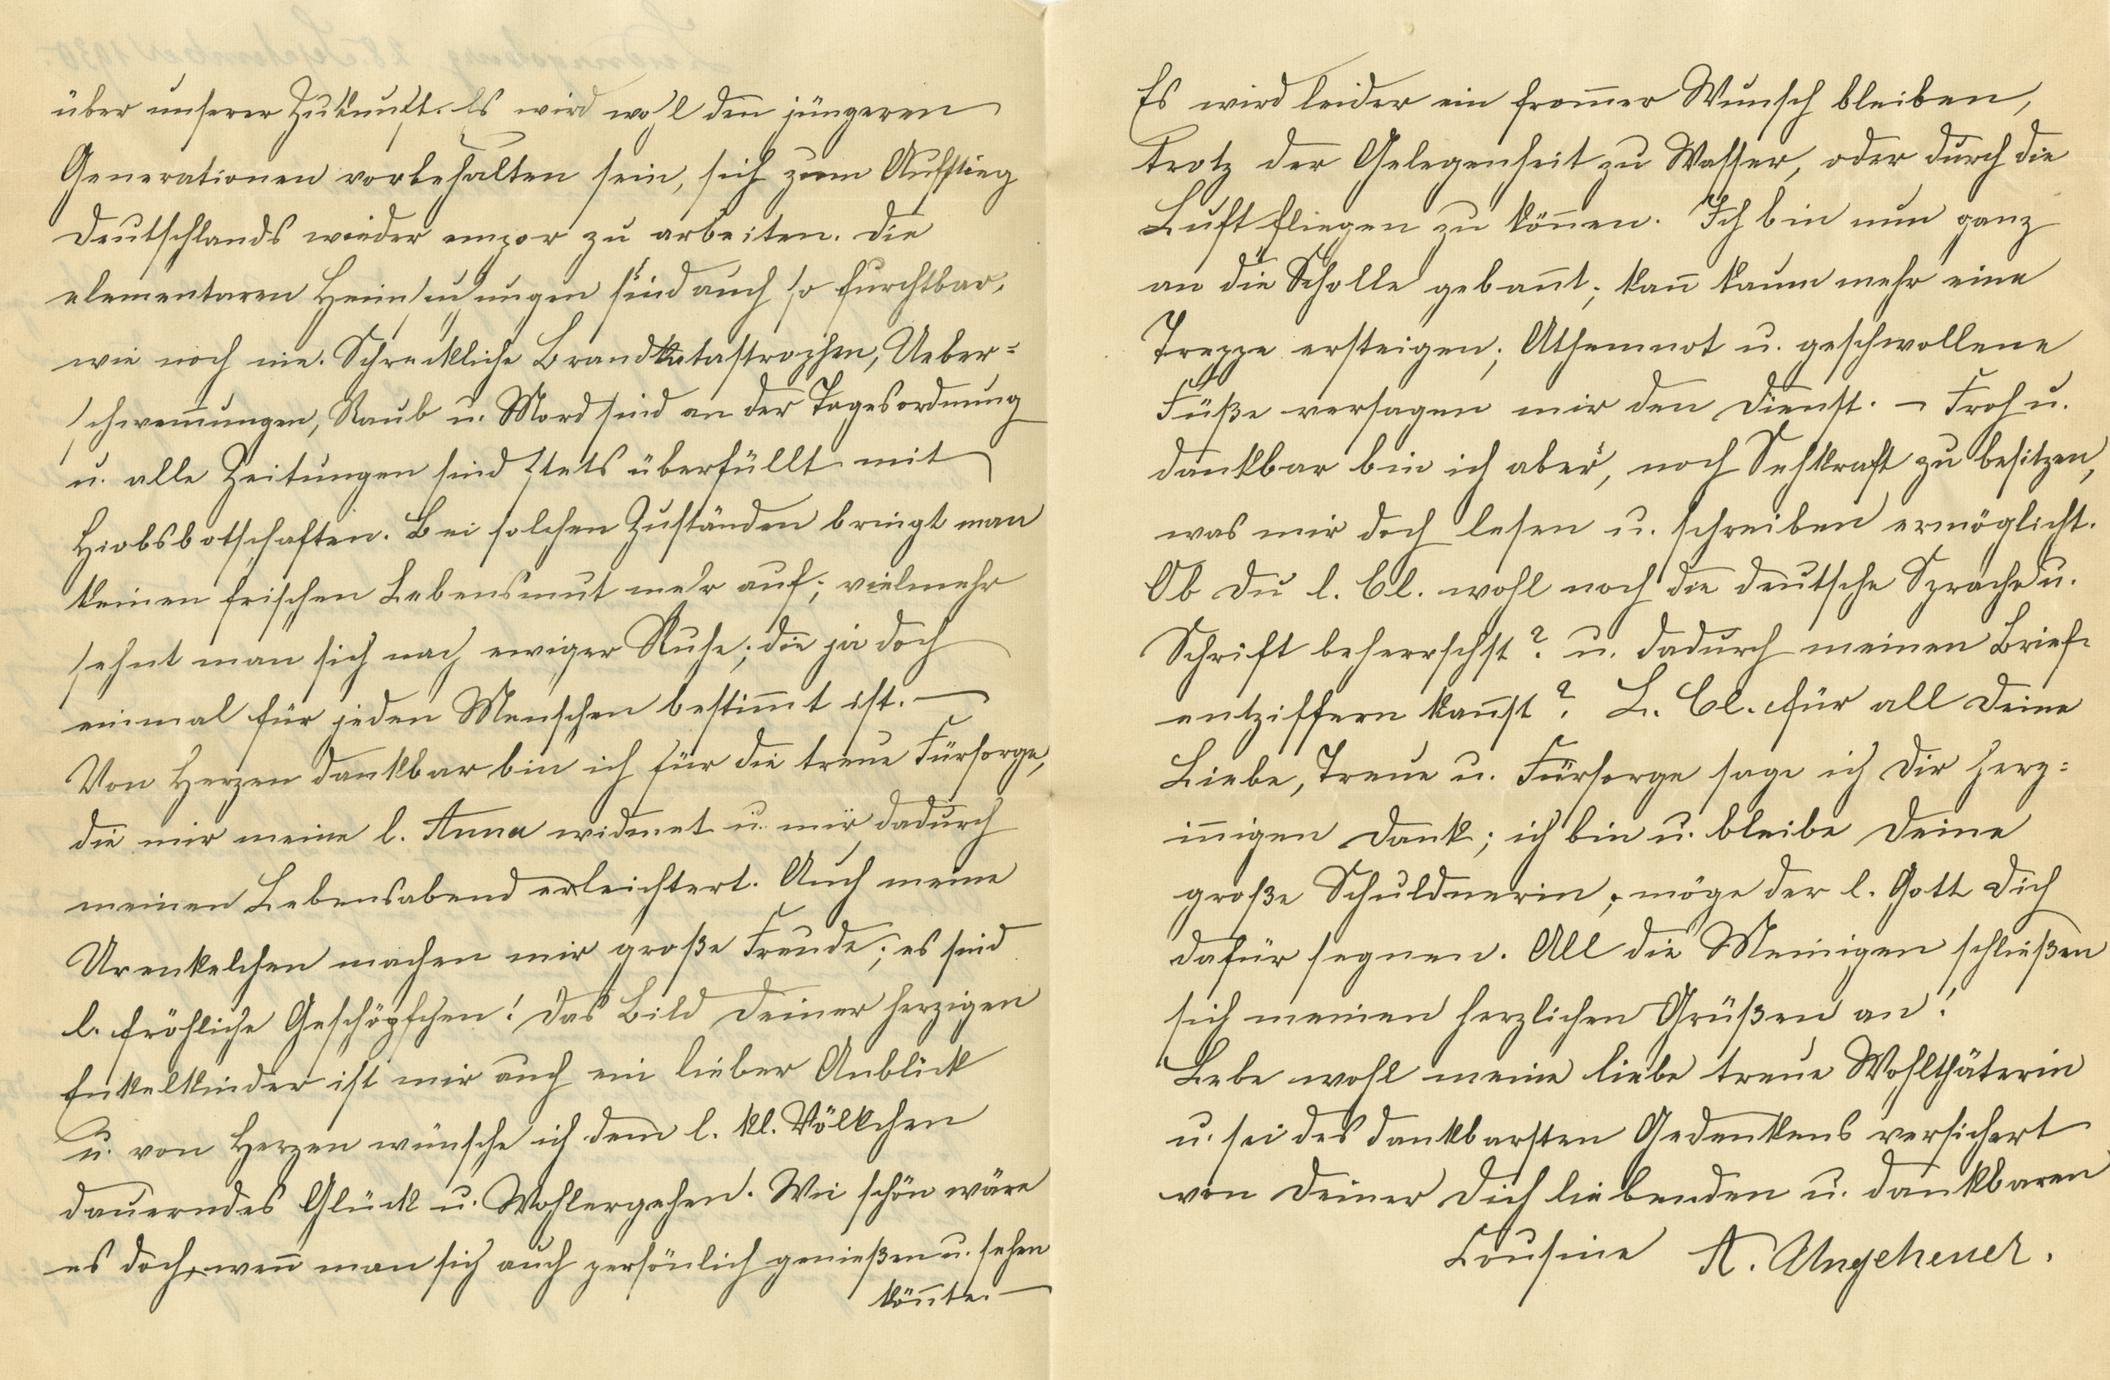 über unserer Zukunft. Es wird wohl den jüngeren
Generationen vorbehalten sein, sich zum Aufstieg
Deutschlands wieder empor zu arbeiten. Die
elementaren Heimsuchungen sind auch so furchtbar,
wie noch nie. Schreckliche Brandkatastrophen, Ueber=
schwem̄ungen, Raub u. Mord sind an der Tagesordnung
u. alle Zeitungen sind stets überfüllt mit
Hiobsbotschaften. Bei solchen Zuständen bringt man
keinen frischen Lebensmut mehr auf; vielmehr
sehnt man sich nach ewiger Ruhe; die ja doch
einmal für jeden Menschen bestim̄t ist. —
Von Herzen dankbar bin ich für die treue Fürsorge,
die mir meine l. Anna widmet u. mir dadurch
meinen Lebensabend erleichtert. Auch meine
Urenkelchen machen mir große Freude; es sind
l. fröhliche Geschöpfchen! Das Bild Deiner herzigen
Enkelkinder ist mir auch ein lieber Anblick
u. von Herzen wünsche ich dem l. kl. Völkchen
dauerndes Glück u. Wohlergehen. Wie schön wäre
es doch, wen̄ man sich auch persönlich genießen u. sehen
kön̄te. —
Es wird leider ein from̄er Wunsch bleiben,
trotz der Gelegenheit zu Wasser, oder durch die
Luft fliegen zu kön̄en. Ich bin nun ganz
an die Scholle geban̄t; kan̄ kaum mehr eine
Treppe ersteigen; Athemnot u. geschwollene
Füße versagen mir den Dienst. – Froh u.
dankbar bin ich aber, noch Sehkraft zu besitzen,
was mir doch lesen u. schreiben ermöglicht.
Ob Du l. Cl. wohl noch die deutsche Sprache u.
Schrift beherrschst? u. dadurch meinen Brief
entziffern kannst? L. Cl. für all Deine
Liebe, Treue u. Fürsorge sage ich Dir herz=
in̄igen Dank; ich bin u. bleibe Deine
große Schuldnerin; möge der l. Gott Dich
dafür segnen. All die Meinigen schließen
sich meinen herzlichen Grüßen an!
Lebe wohl meine liebe treue Wohlthäterin
u. sei des dankbarsten Gedenkens versichert
von Deiner Dich liebenden u. dankbaren
Cousine A. Ungeheuer.